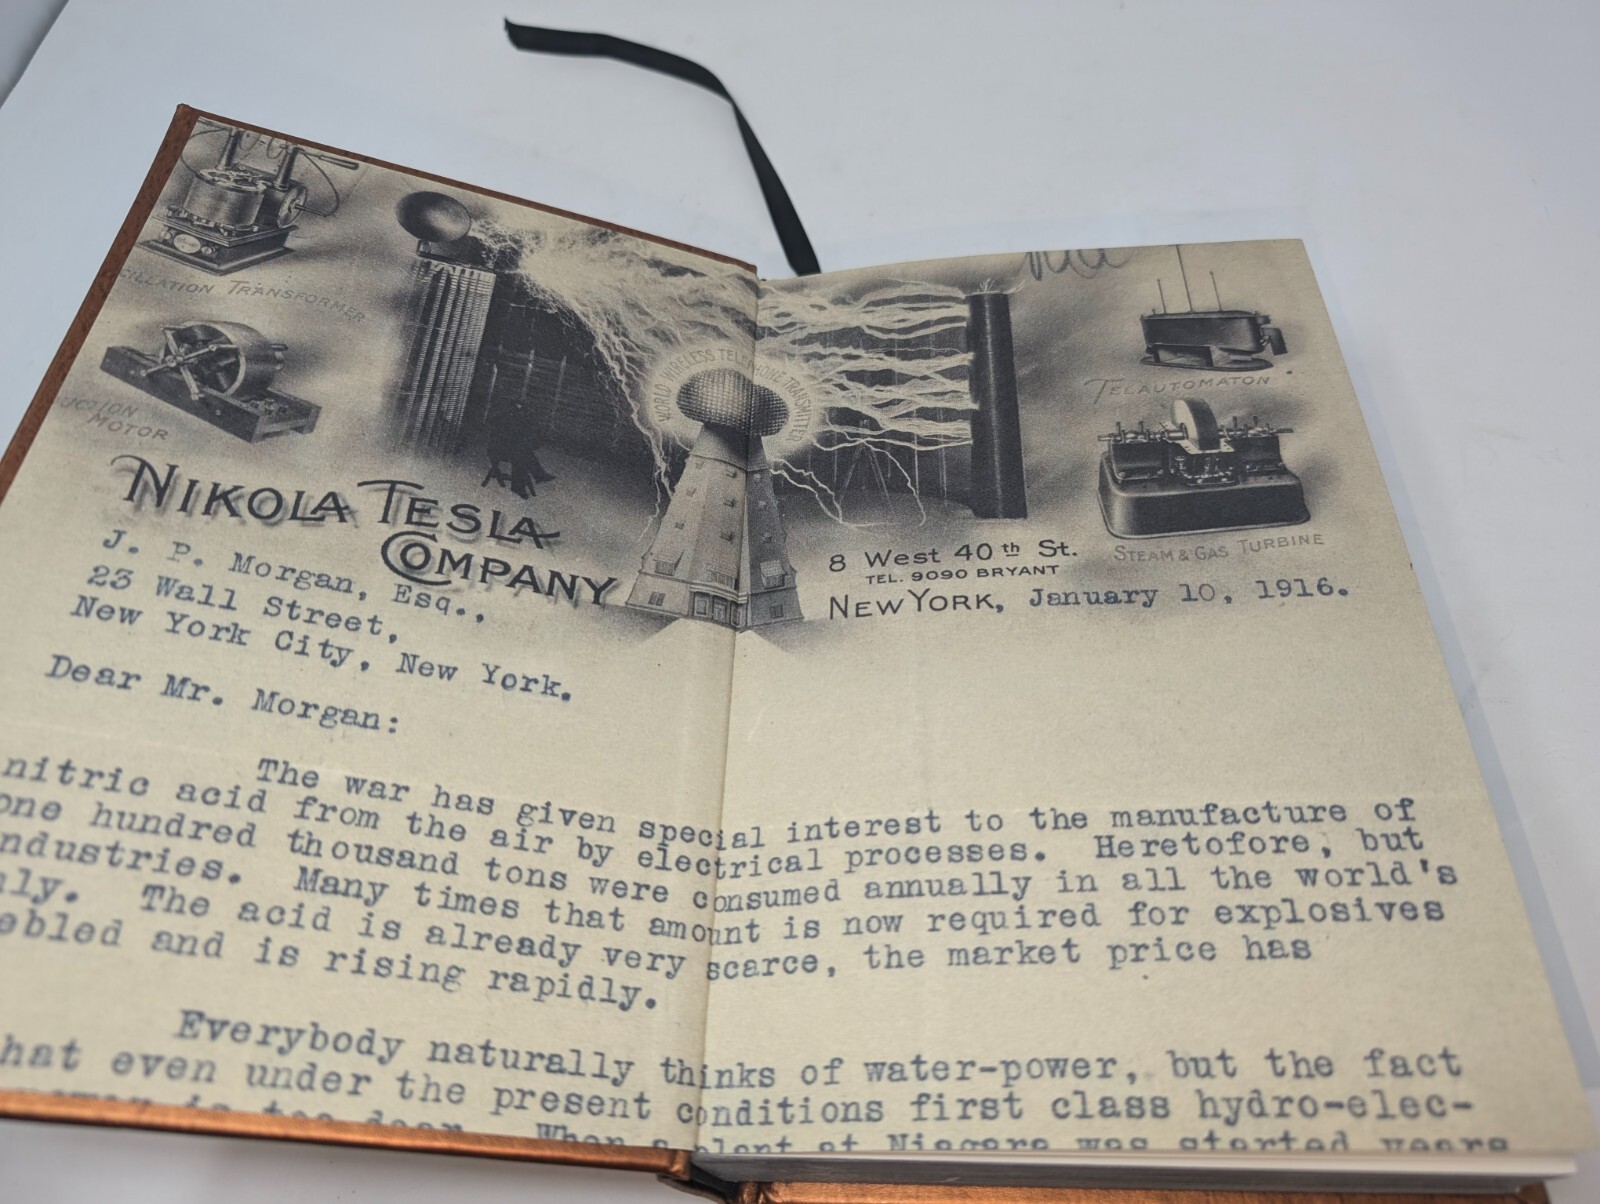 TRANSFORMER
MOTOR
WORLD WIRELESS TELEPHONE TRANSMITTER
TELAUTOMATON
STEAM & GAS TURBINE
NIKOLA TESLA
COMPANY
8 West 40th St.
TEL. 9090 BRYANT
NEW YORK, January 10, 1916.
J. P. Morgan, Esq.,
23 Wall Street,
New York City, New York.
Dear Mr. Morgan:
The war has given special interest to the manufacture of
nitric acid from the air by electrical processes. Heretofore, but
one hundred thousand tons were consumed annually in all the world's
ndustries. Many times that amount is now required for explosives
ly. The acid is already very scarce, the market price has
ebled and is rising rapidly.
Everybody naturally thinks of water-power, but the fact
hat even under the present conditions first class hydro-elec-
is too dear. When a plant at Niagara was started years